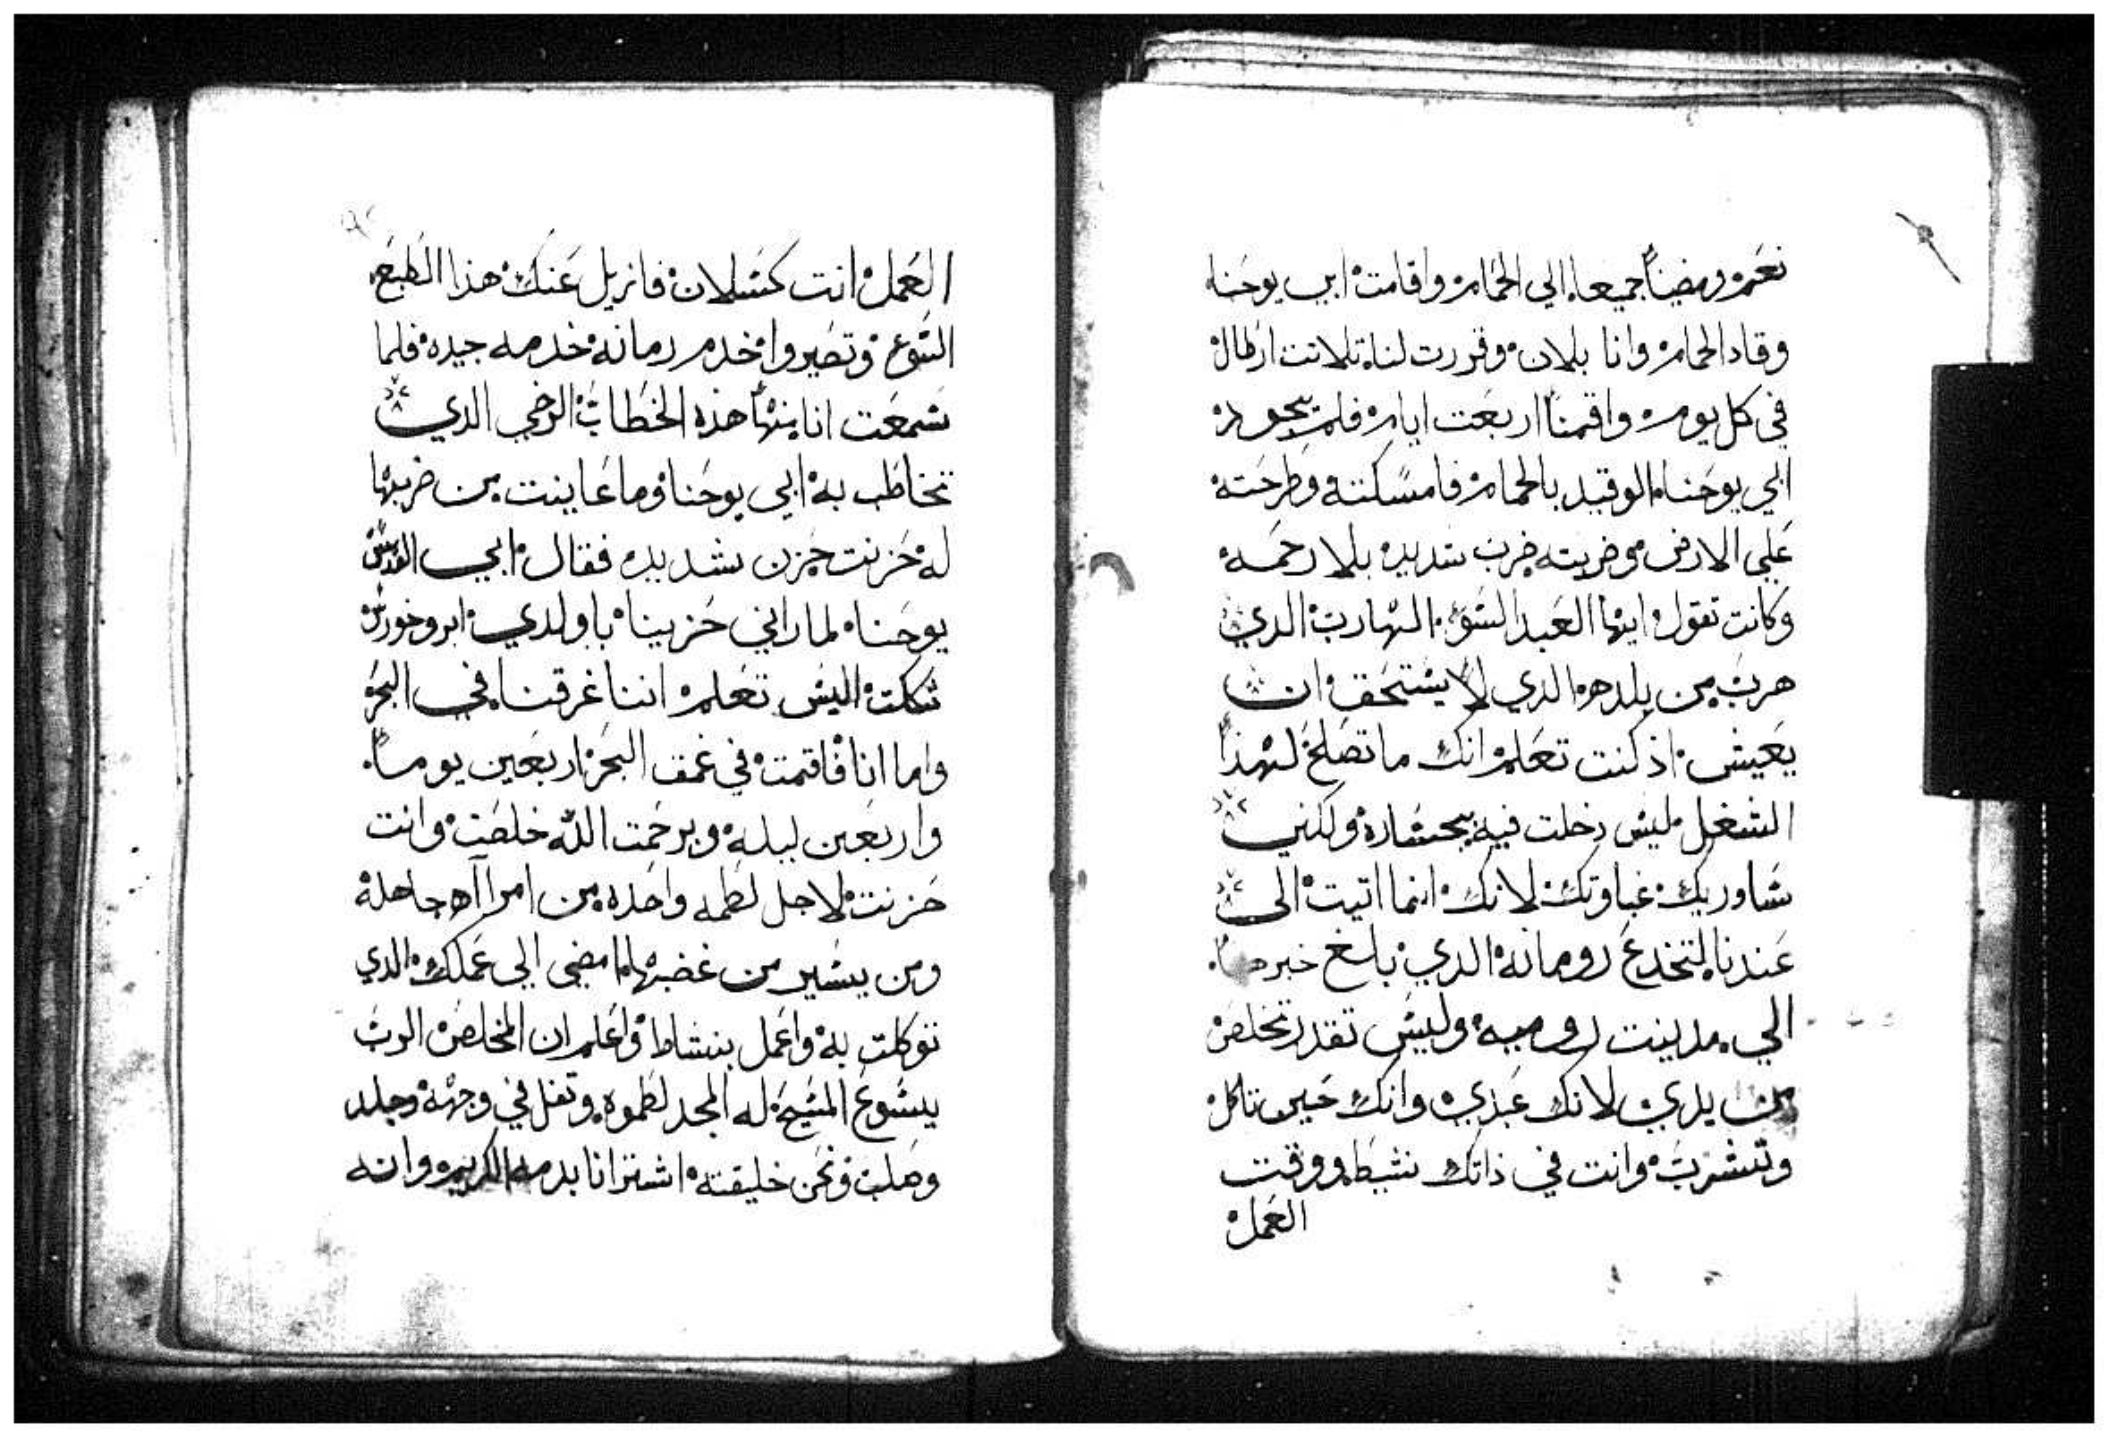 نعم ومضينا جميعا الي الحمام واقامت ابي يوحنا
وقاد الحمام وانا بلان وقررت لنا تلاتت ارطال
في كل يوم واقمنا اربعت ايام فلم يجود
ابي يوحنا الوقيد بالحمام فامسكته وطرحته
علي الارض وضربته ضرب شديد بلا رحمه
وكانت تقول ايها العبد السو الهارب الدي
هرب من بلده الدي لا يستحق ان
يعيش اذ كنت تعلم انك ما تصلح لهذا
الشغل ليش دخلت فيه بجساره ولكني
شاوريك غباوتك لانك انما اتيت الى
عندنا لتخدع رومانه الدي بلغ خبرها
الي مدينت روميه وليس تقدر تخلص
من يدي لانك عبدي وانك حين تاكل
وتشرب وانت في ذاتك نشيط ووقت
العمل
العمل انت كسلان فازيل عنك هذا الطبع
السوع وتصير واخدم رمانه خدمه جيده فلما
سمعت انا منها هذه الخطاب الرخي الدي
تخاطب به ابي يوحنا وما عاينت من ضربها
له حزنت حزن شديد فقال ابي القديس
يوحنا لما راني حزينا ياولدي ابروخورس
شككت اليس تعلم اننا غرقنا في البحر
واما انا فاقمت في غمق البحر اربعين يوما
واربعين ليله وبرحمت الله خلصت وانت
حزنت لاجل لطمه واحده من امرااه جاهله
ومن يسير من غضبها امضي الي عملك الدي
توكلت به واعمل بنشاط واعلم ان المخلص الرب
يسوع المسيح له المجد لطموه وتفل في وجهه وجلد
وصلب ونحن خليقته اشترانا بدمه الكريم وانه